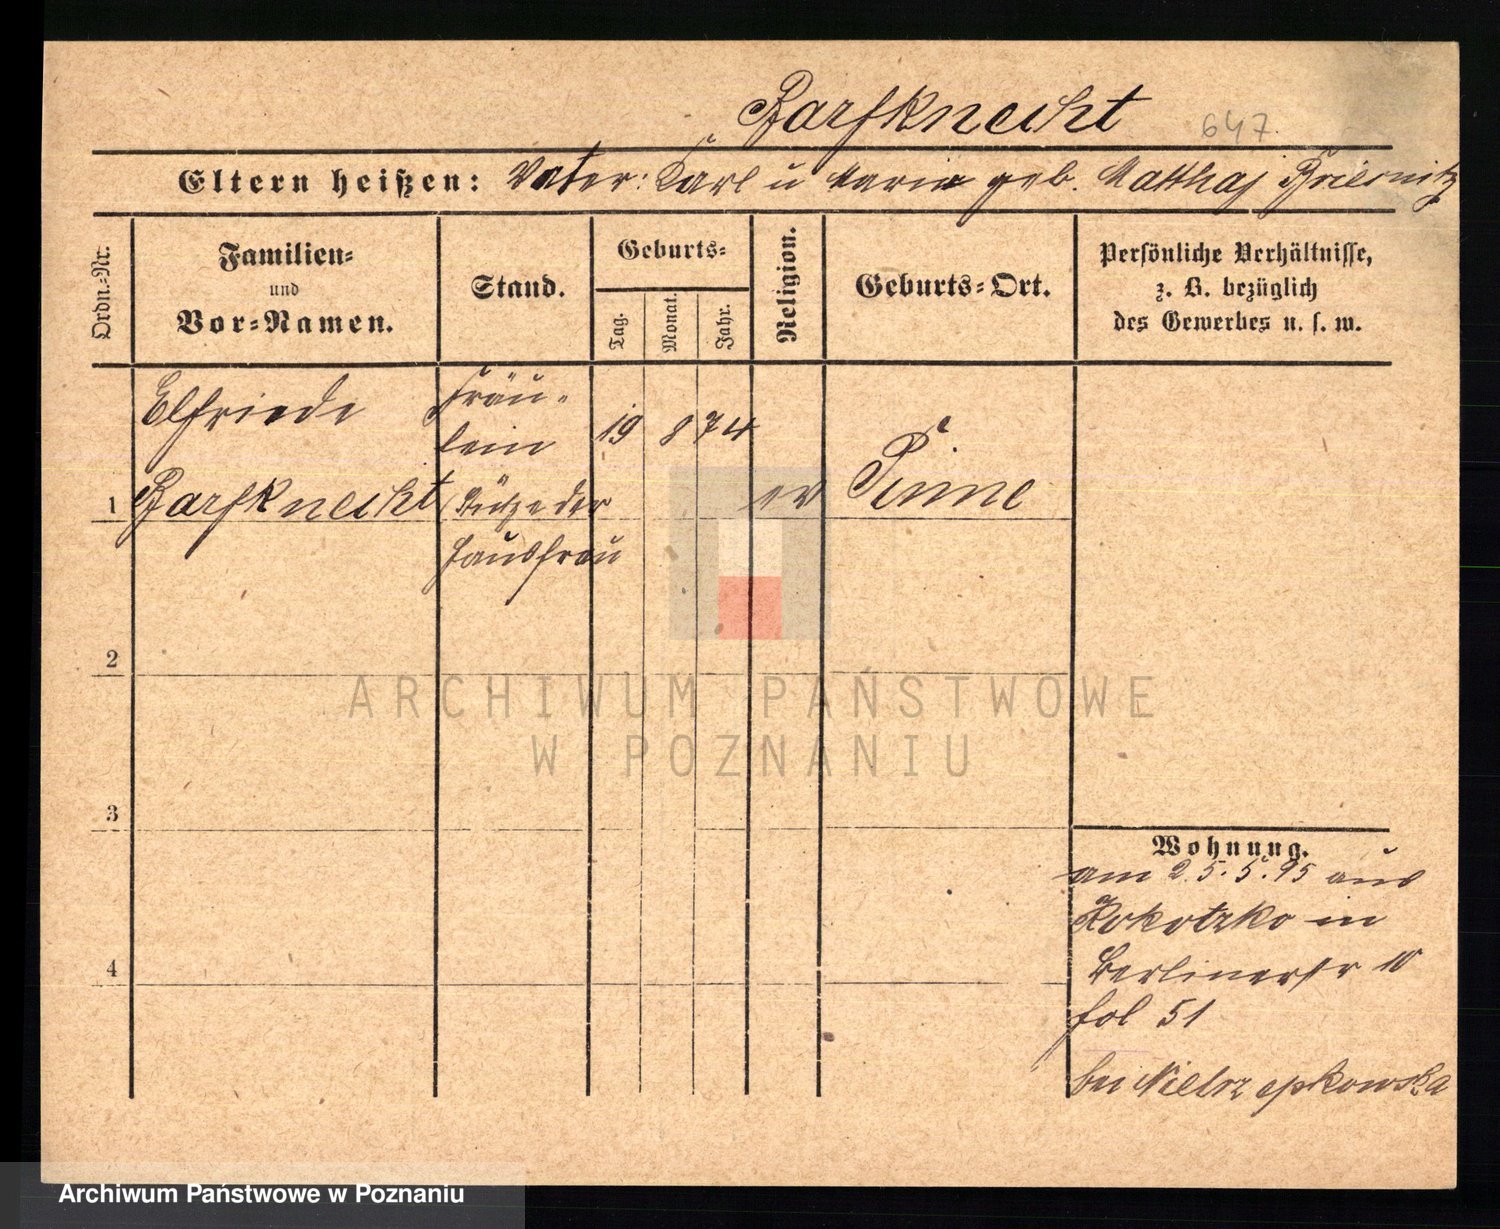 Barfknecht
647
Eltern heißen: Vater: Karl u Marie geb. Matthaj
Ordn.-Nr.
Familien-
und
Vor-Namen.
Stand.
Geburts-
Tag.
Monat.
Jahr.
Religion.
Geburts-Ort.
Persönliche Verhältnisse,
z. B. bezüglich
des Gewerbes u. s. w.
Elfriede
Barfknecht
Fräu-
lein
Stütze der
Hausfrau
19 8 74
ev
Pinne
1
2
3
4
Wohnung.
am 25.5.95 aus
Kokotzko in
Berlinerstr 10
fol 51
bei
ARCHIWUM PAŃSTWOWE
W POZNANIU
Archiwum Państwowe w Poznaniu